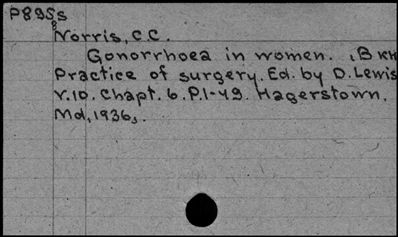 P895s
8
Norris, C.C.
Gonorrhoea in women. (BKH
Practice of surgery. Ed. by D. Lewis
v.10. Chapt. 6. P.1-49. Hagerstown,
Md, 1936,.